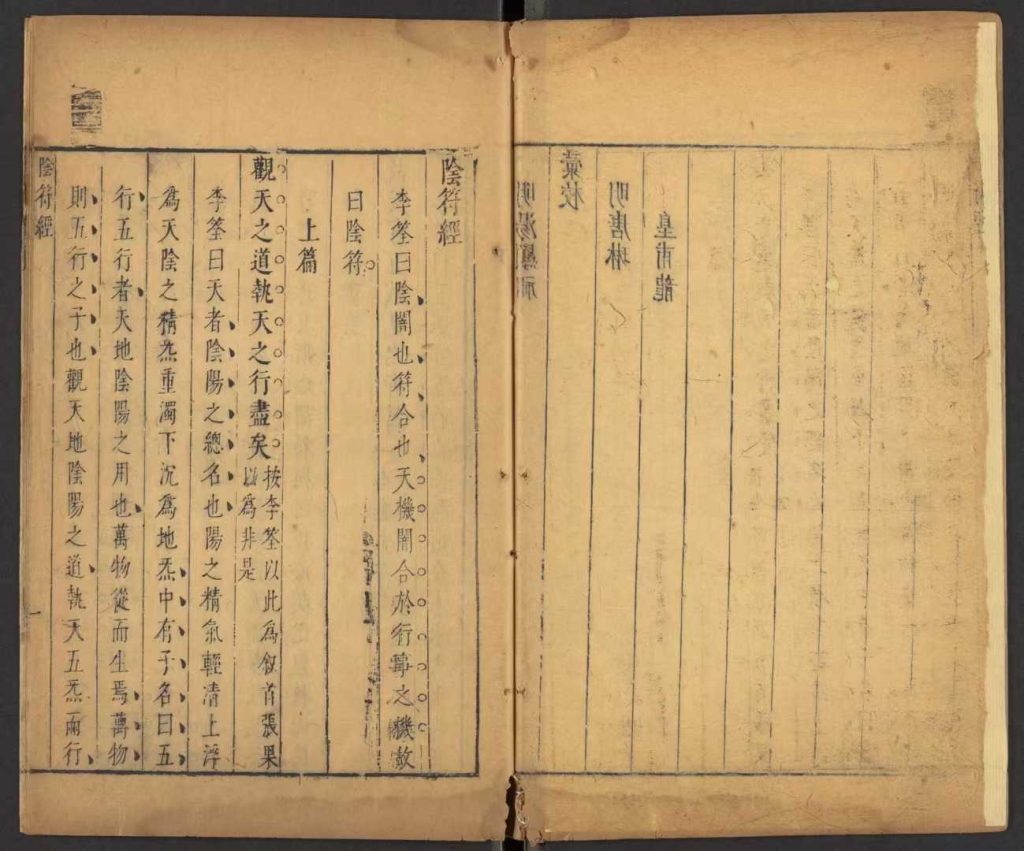 皇甫龍
明唐琳
彙校
陰符經
李筌曰陰闇也符合也天機闇合於行事之機故
曰陰符。
上篇
觀天之道執天之行盡矣
按李筌以此爲叙首張果
以爲非是
李筌曰天者陰陽之總名也陽之精氣輕清上浮
爲天陰之精炁重濁下沉爲地炁中有子名曰五
行五行者天地陰陽之用也萬物從而生焉萬物
則五行之子也觀天地陰陽之道執天五炁而行
陰符經
一